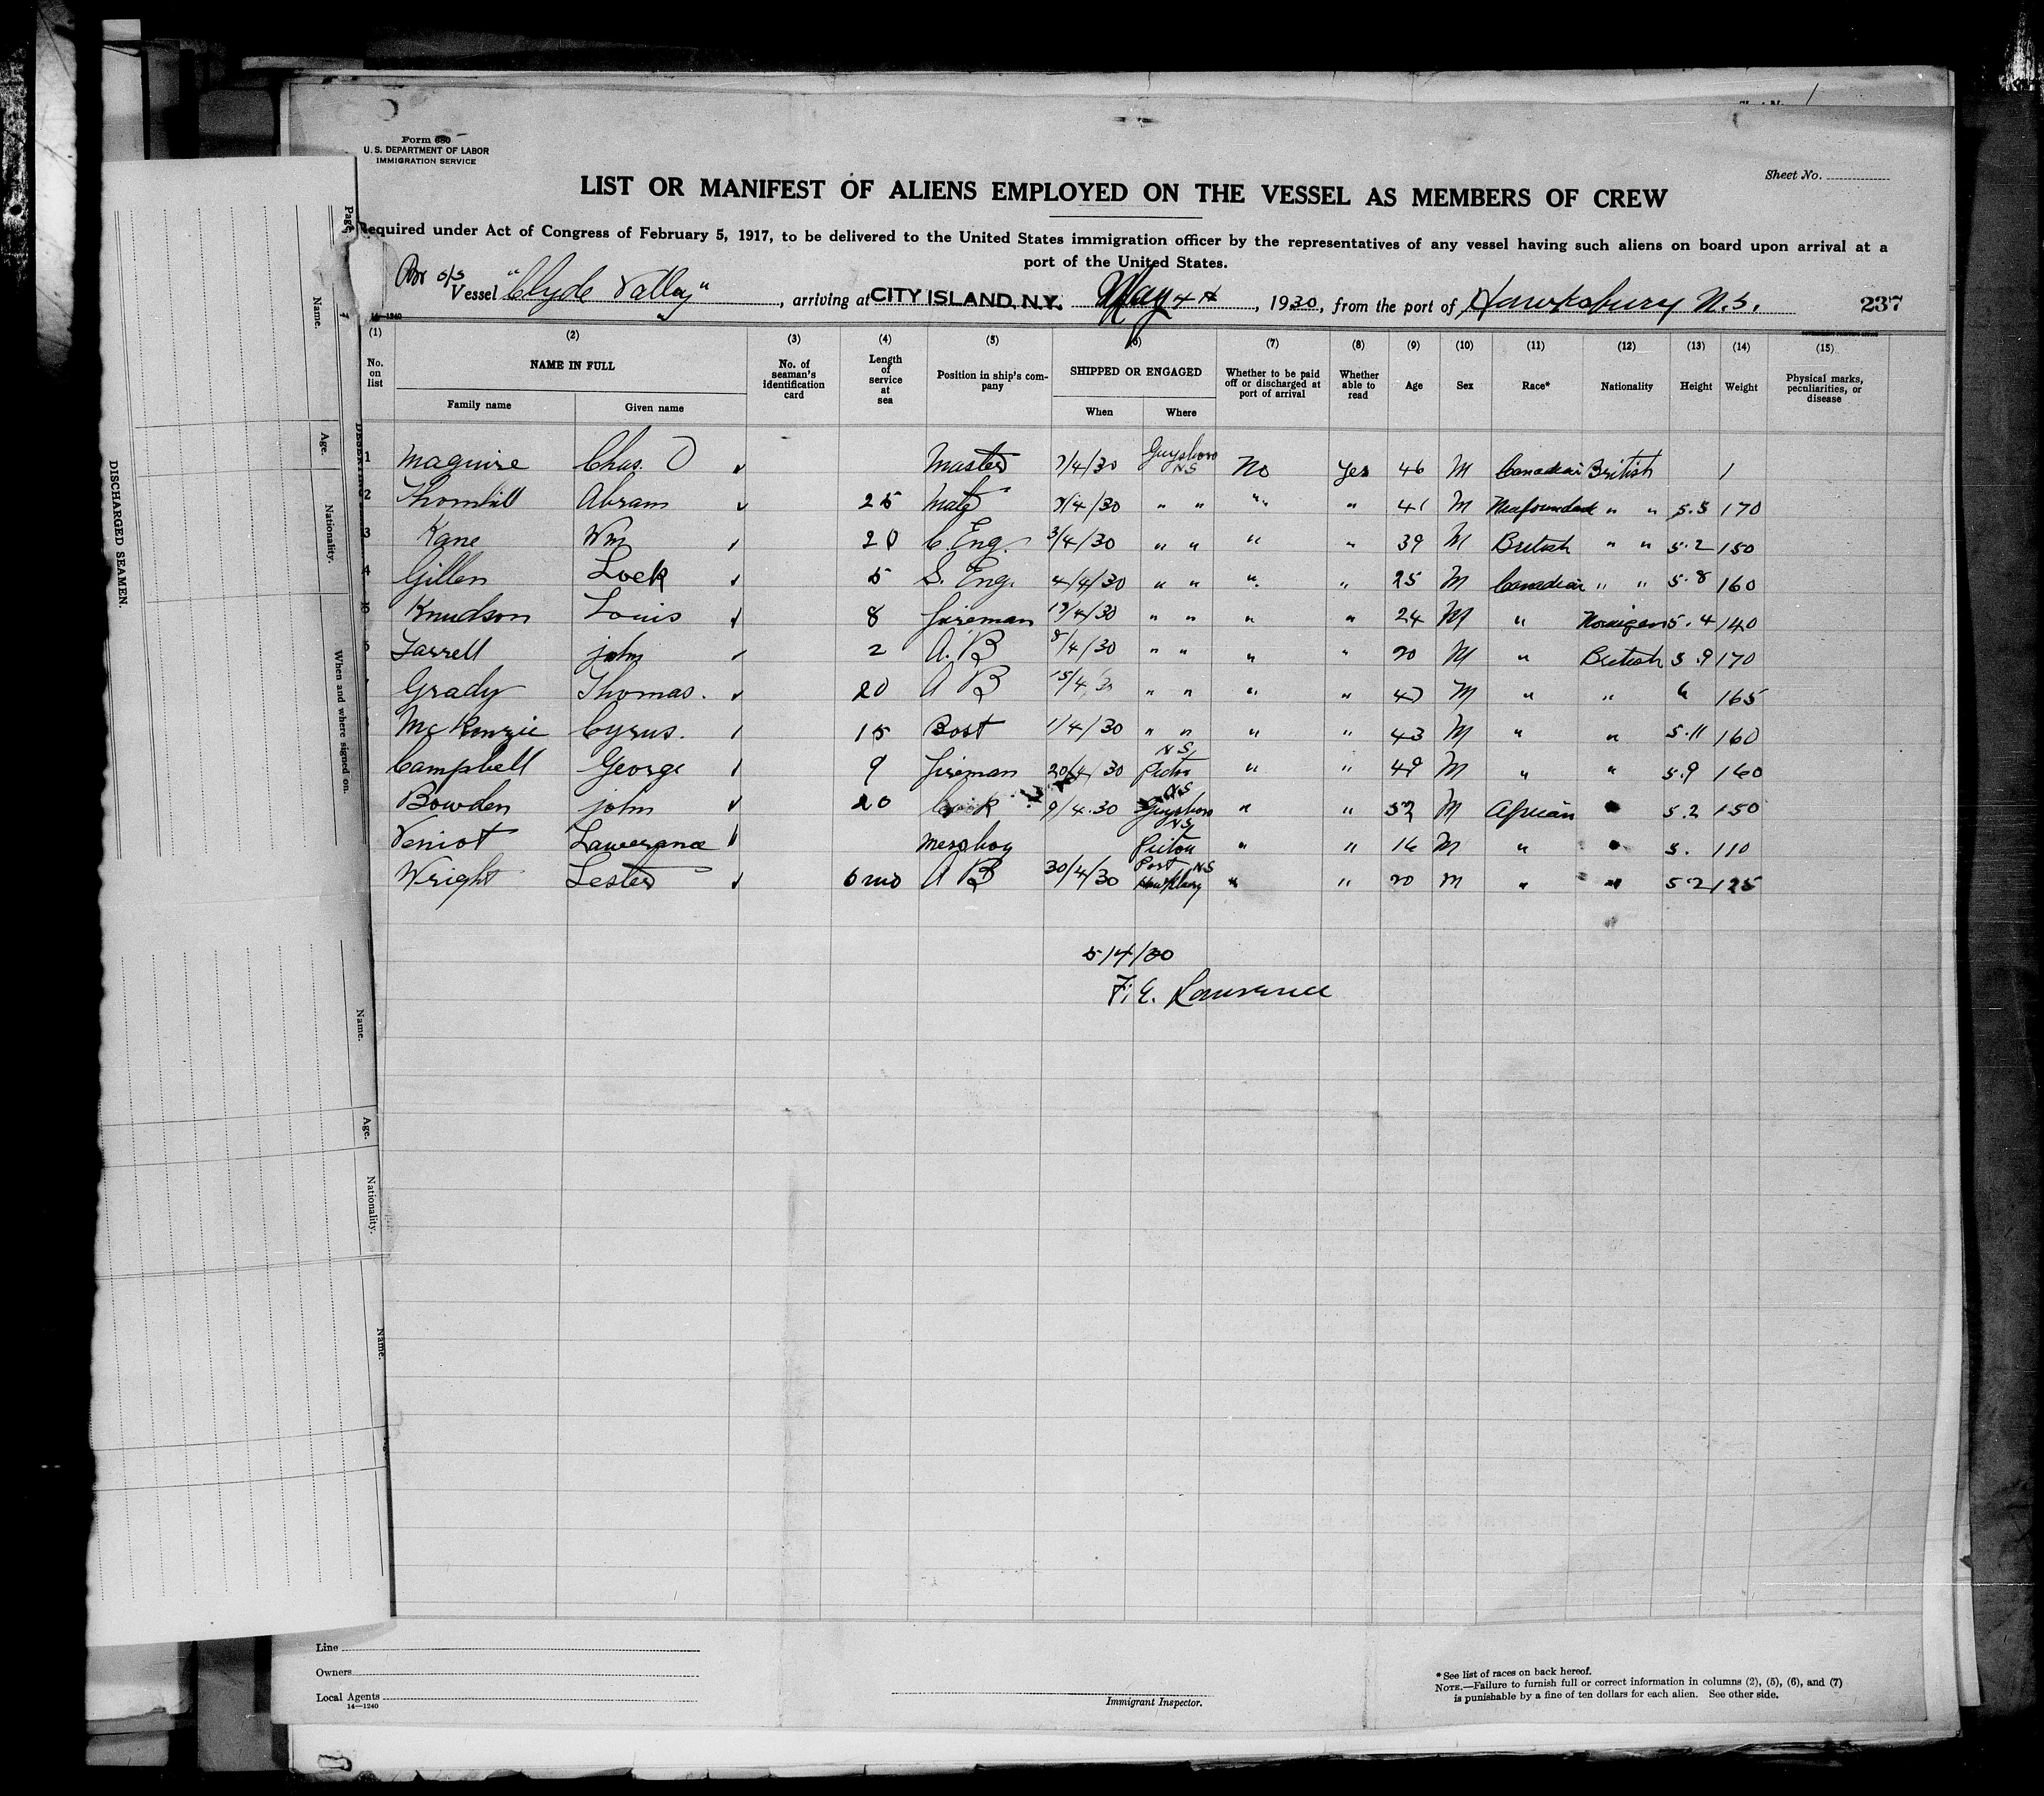 Sheet No. /
Form 680
U. S. DEPARTMENT OF LABOR
IMMIGRATION SERVICE
Sheet No.
LIST OR MANIFEST OF ALIENS EMPLOYED ON THE VESSEL AS MEMBERS OF CREW
Required under Act of Congress of February 5, 1917, to be delivered to the United States immigration officer by the representatives of any vessel having such aliens on board upon arrival at a
port of the United States.
Br s/s Vessel "Clyde Valley", arriving at CITY ISLAND, N.Y. May 4th, 1930, from the port of Hawksbury N.S. 237
14—1240
(1) (2) (3) (4) (5) (6) (7) (8) (9) (10) (11) (12) (13) (14) (15)
No. on list NAME IN FULL No. of seaman's identification card Length of service at sea Position in ship's company SHIPPED OR ENGAGED Whether to be paid off or discharged at port of arrival Whether able to read Age Sex Race* Nationality Height Weight Physical marks, peculiarities, or disease
Family name Given name When Where
1 Maguire Chas. D Master 7/4/30 Guysboro NS No Yes 46 M Canadian British /
2 Thornhill Abram 25 Mate /4/30 " " " " 41 M " " 5.5 170
3 Kane Wm 20 C. Eng. 3/4/30 " " " " 39 M British " " 5.2 150
4 Gillen Lock 5 S. Eng. 4/4/30 " " " " 25 M Canadian " " 5.8 160
5 Knudson Louis 8 fireman /4/30 " " " " 24 M " 5.4 140
Farrell john 2 A. B 8/4/30 " " " " 20 M " British 5.9 170
Grady Thomas. 20 A B 15/4/30 " " " " 47 M " " 6 165
McKenzie Cyrus. 15 Bost 1/4/30 " " " " 43 M " " 5.11 160
Campbell George 9 fireman 20/4/30 Pictou NS " " 49 M " " 5.9 160
Bowden john 20 Cook 9/4.30 Guysboro NS " " 52 M African " 5.2 150
Veniot Lawerance Messboy Pictou NS " " 16 M " " 5. 110
Wright Lester 6 mo A B 30/4/30 Port Hawksbury NS " " 20 M " " 5.2 125
5/4/30
F. E. Lawrence
Line
Owners
Local Agents
14—1240
Immigrant Inspector.
* See list of races on back hereof.
NOTE.—Failure to furnish full or correct information in columns (2), (5), (6), and (7)
is punishable by a fine of ten dollars for each alien. See other side.
DISCHARGED SEAMEN.
Page
Name.
Age.
Nationality.
When and where signed on.
Name.
Age.
Nationality.
Name.